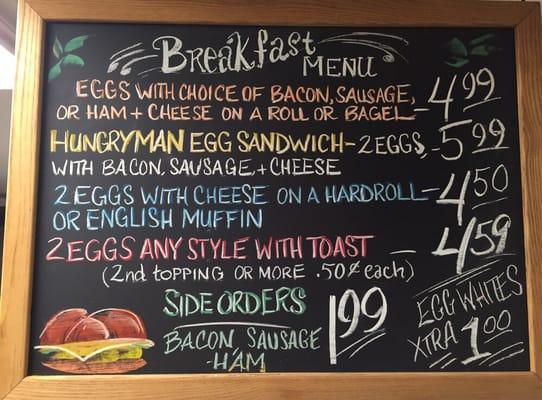 Breakfast
MENU
EGGS WITH CHOICE OF BACON, SAUSAGE, 4.99
OR HAM + CHEESE ON A ROLL OR BAGEL
HUNGRYMAN EGG SANDWICH - 2 EGGS, - 5.99
WITH BACON, SAUSAGE, + CHEESE
2 EGGS WITH CHEESE ON A HARDROLL - 4.50
OR ENGLISH MUFFIN
2 EGGS ANY STYLE WITH TOAST - 4.59
(2nd TOPPING OR MORE .50¢ each)
SIDE ORDERS
BACON, SAUSAGE 1.99
- HAM
EGG WHITES
XTRA 1.00